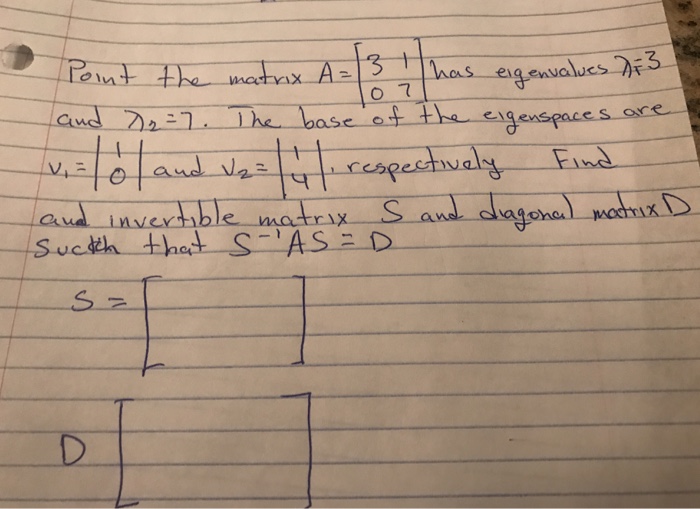 Point the matrix A = [3 1 0 7] has eigenvalues λ1=3
and λ2=7. The base of the eigenspaces are
v1 = |1 0| and v2 = |1 4|. respectively Find
and invertible matrix S and diagonal matrix D
Such that S⁻¹AS = D
S = [ ]
D [ ]